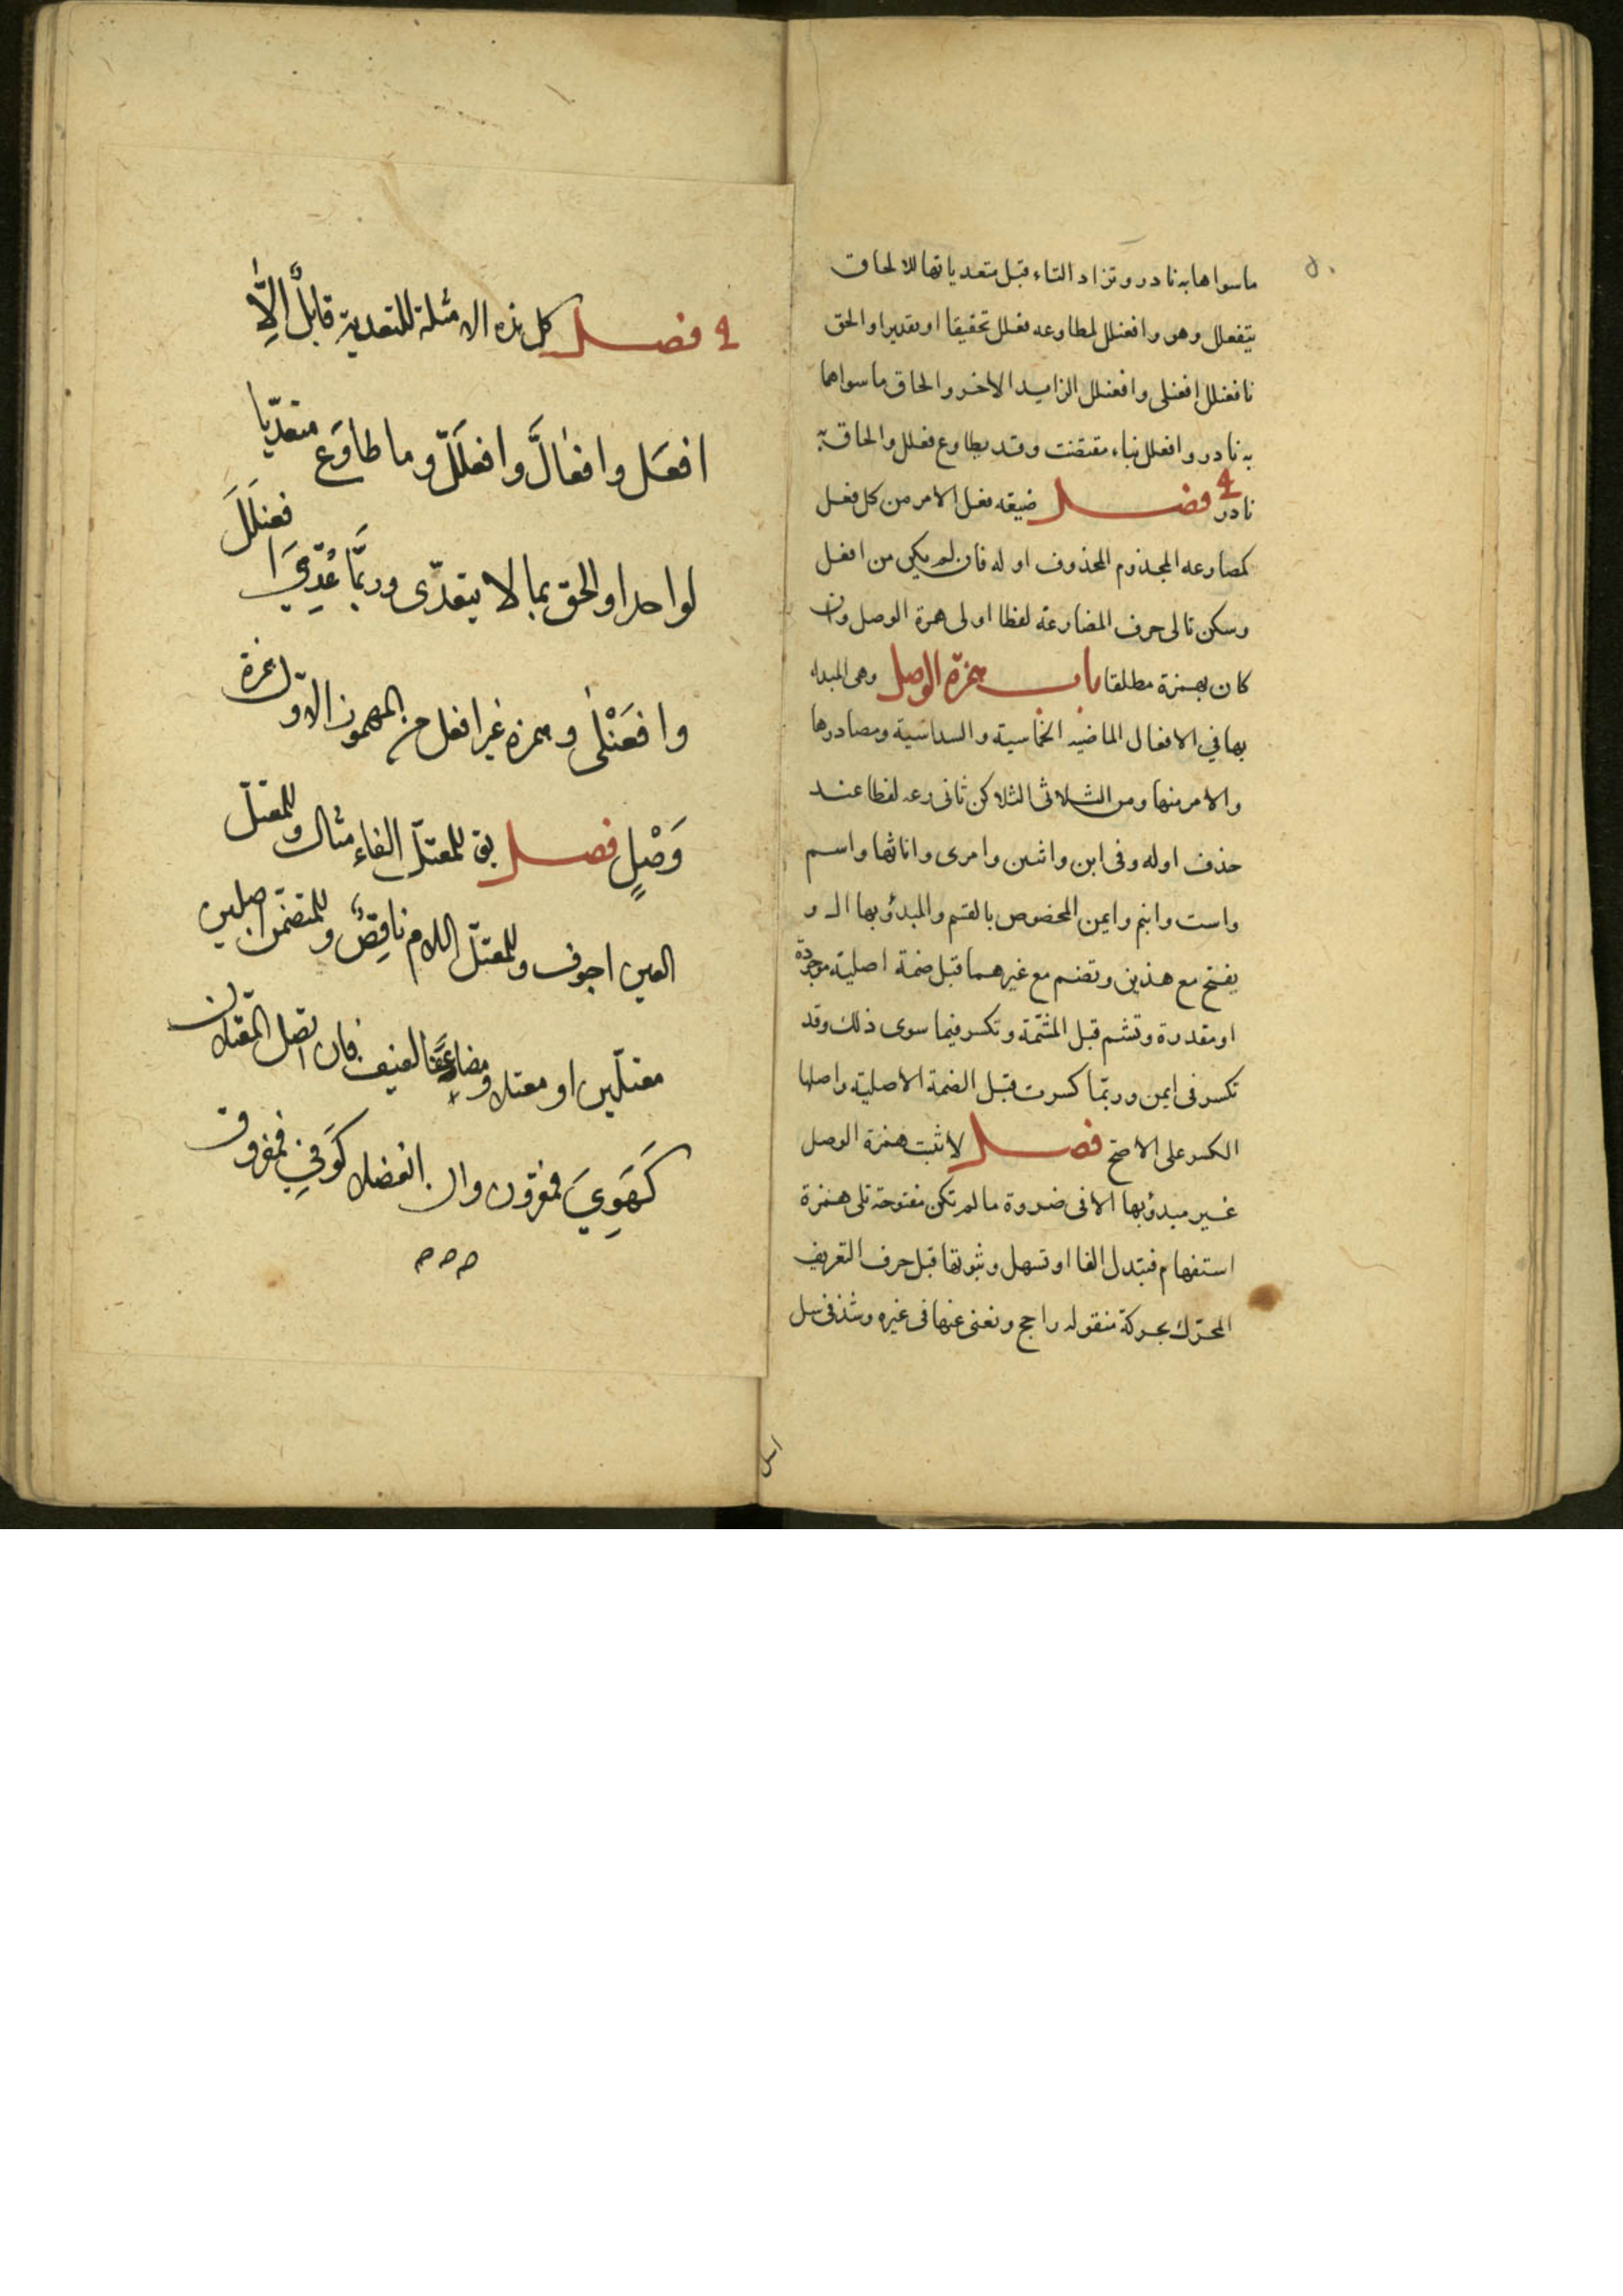 ما سواها به نادر وتزاد التاء قبل متعدياتها للالحاق
بتفعلل وهو وافعنلل لمطاوعه فعلل تحقيقا او تقديرا والحق
بافعنلل افعنلى وافعنلل الزايد الاخر والحاق ما سواهما
به نادر وافعلل بناء مقتضب وقد يطاوع فعلل والحاق به
نادر فصل صيغه فعل الامر من كل فعل
كمضارعه المجذوم المحذوف اوله فان لم يكن من افعل
وسكن تالى حرف المضارعة لفظا اولى همزة الوصل وان
كان بهمزة مطلقا باب همزة الوصل وهى المبداء
بها في الافعال الماضيه الخماسية والسداسية ومصادرها
والامر منها ومن الثلاثى الساكن ثانى مضارعه لفظا عند
حذف اوله وفى ابن واثنين وامرى واناثها واسم
واست وابنم وايمن المخصوص بالقسم والمبدؤ بها ال و
يفتح مع هذين وتضم مع غيرهما قبل ضمة اصلية موجودة
او مقدرة وتشم قبل المشمة وتكسر فيما سوى ذلك وقد
تكسر فى ايمن وربما كسرت قبل الضمة الاصلية واصلها
الكسر على الاصح فصل لا تثبت همزة الوصل
غير مبدؤ بها الا فى ضرورة ما لم تكن مفتوحة تلى همزة
استفهام فتبدل الفا او تسهل وثبوتها قبل حرف التعريف
المحرك بحركة منقوله راجح ويغنى عنها فى غيره وشذ فى سل
اسل
فصل كل هذه الامثلة للتعدية قابلٌ الّا
افعَل وافعالَّ وافعلَلّ وما طاوَع متعدّيا
لواحد او الحق بما لا يتعدّى وربّما عُدِّيَ افعنلَلَ
وافعَنْلى وهمزه غير افعل من المهموز الاوّل همزة
وَصْلٍ فصل يق للمعتلّ الفاء مثال وللمعتلّ
العين اجوف وللمعتلّ اللام ناقِصٌ وللمتضمّن اصلين
معتلّين او معتلا ومضاعفا لفيف فان اتصل المعتلان
كَهَوِيَ فمقرون وان انفصلا كوَفِيَ فمفروق